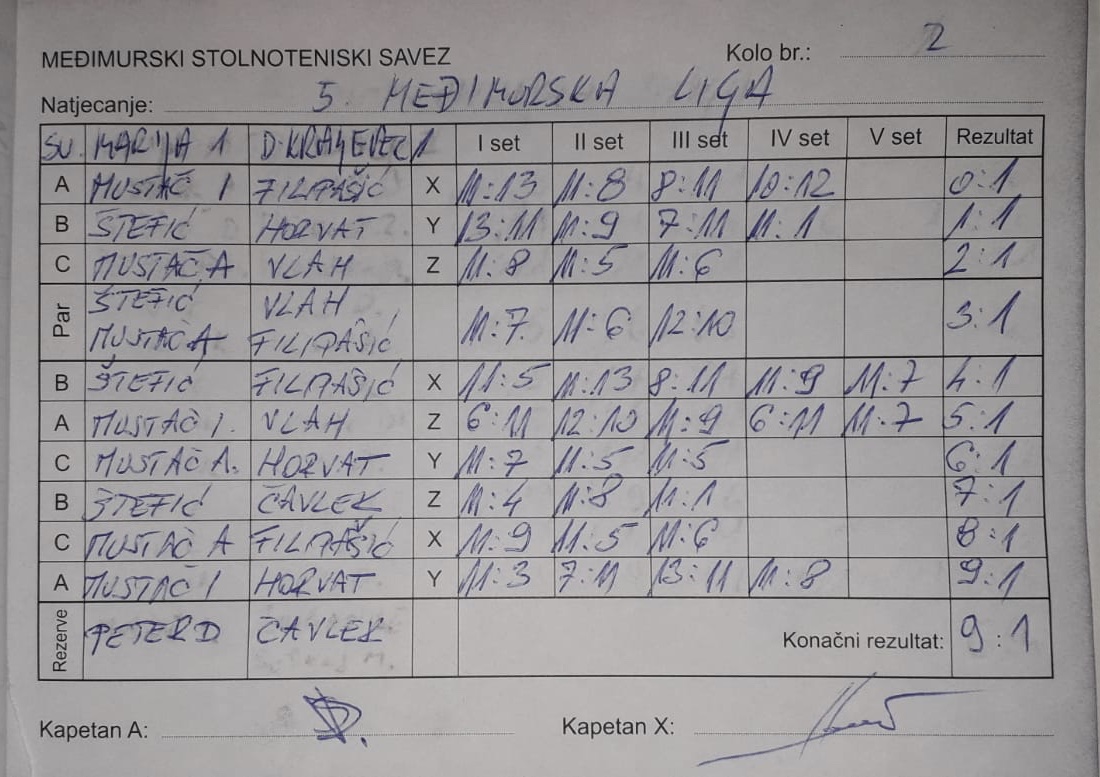 MEĐIMURSKI STOLNOTENISKI SAVEZ Kolo br.: 2
Natjecanje: 5. MEĐIMURSKA LIGA
SV. MARIJA 1 D.KRALJEVEC 1 I set II set III set IV set V set Rezultat
A MUSTAČ I FILIPAŠIĆ X 11:13 11:8 8:11 10:12 0:1
B ŠTEFIĆ HORVAT Y 13:11 11:9 7:11 11:1 1:1
C MUSTAČ A VLAH Z 11:8 11:5 11:6 2:1
Par ŠTEFIĆ VLAH
MUSTAČ A FILIPAŠIĆ 11:7 11:6 12:10 3:1
B ŠTEFIĆ FILIPAŠIĆ X 11:5 11:13 8:11 11:9 11:7 4:1
A MUSTAČ I. VLAH Z 6:11 12:10 11:9 6:11 11:7 5:1
C MUSTAČ A. HORVAT Y 11:7 11:5 11:5 6:1
B ŠTEFIĆ ČAVLEK Z 11:4 11:8 11:1 7:1
C MUSTAČ A FILIPAŠIĆ X 11:9 11:5 11:6 8:1
A MUSTAČ I HORVAT Y 11:3 7:11 13:11 11:8 9:1
Rezerve PETER D ČAVLEK Konačni rezultat: 9:1
Kapetan A: Kapetan X: